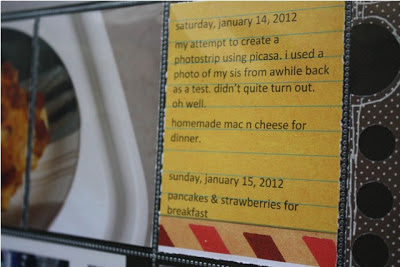 saturday, january 14, 2012
my attempt to create a
photostrip using picasa. i used a
photo of my sis from awhile back
as a test. didn't quite turn out.
oh well.
homemade mac n cheese for
dinner.
sunday, january 15, 2012
pancakes & strawberries for
breakfast